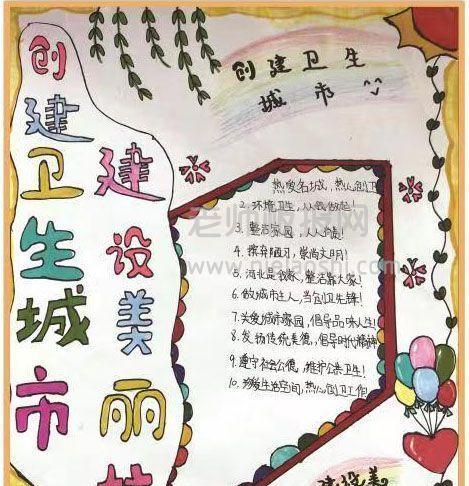 创建卫生城市
建设美丽
创建卫生
城市
热爱名城,热心创卫
2. 环境卫生,从我做起!
3. 整洁家园,人人
4. 摈弃陋习,崇尚文明!
5. 河北是我家,整洁靠大家!
6. 做城市主人,当创卫先锋!
7. 关爱城市家园,倡导品味人生!
8. 发扬传统美德,倡导时代精神
9. 遵守社会公德,维护公共卫生!
10. 珍爱生活空间,热心创卫工作
建设美